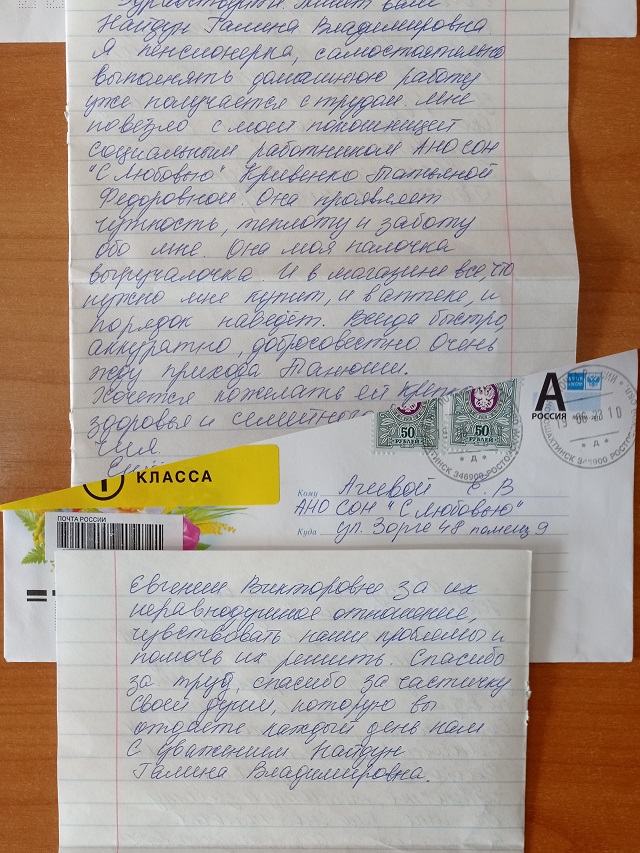 Здравствуйте. Пишет вам
Найдун Галина Владимировна
Я пенсионерка, самостоятельно
выполнять домашнюю работу
уже получается с трудом. Мне
повезло с моей помощницей
социальным работником АНО СОН
"С Любовью" Кривенко Татьяной
Федоровной. Она проявляет
чуткость, теплоту и заботу
обо мне. Она моя палочка
выручалочка. И в магазине все, что
нужно мне купит, и в аптеке, и
порядок наведёт. Всегда быстро,
аккуратно, добросовестно Очень
жду прихода Танюши.
Хочется пожелать ей
здоровья и семейного
чия.
50
РУБЛЕЙ
50
РУБЛЕЙ
А
РОССИЯ
10
ШАХТИНСК 346900 РОСТОВ
1 КЛАССА
Кому Ачиевой Е В
АНО СОН "С Любовью"
Куда ул. Зорге 48 помещ 9
ПОЧТА РОССИИ
Евгении Викторовне за их
неравнодушное отношение,
чувствовать наши проблемы и
помочь их решить. Спасибо
за труд, спасибо за частичку
своей души, которую вы
отдаёте каждый день нам
С уважением Найдун
Галина Владимировна.